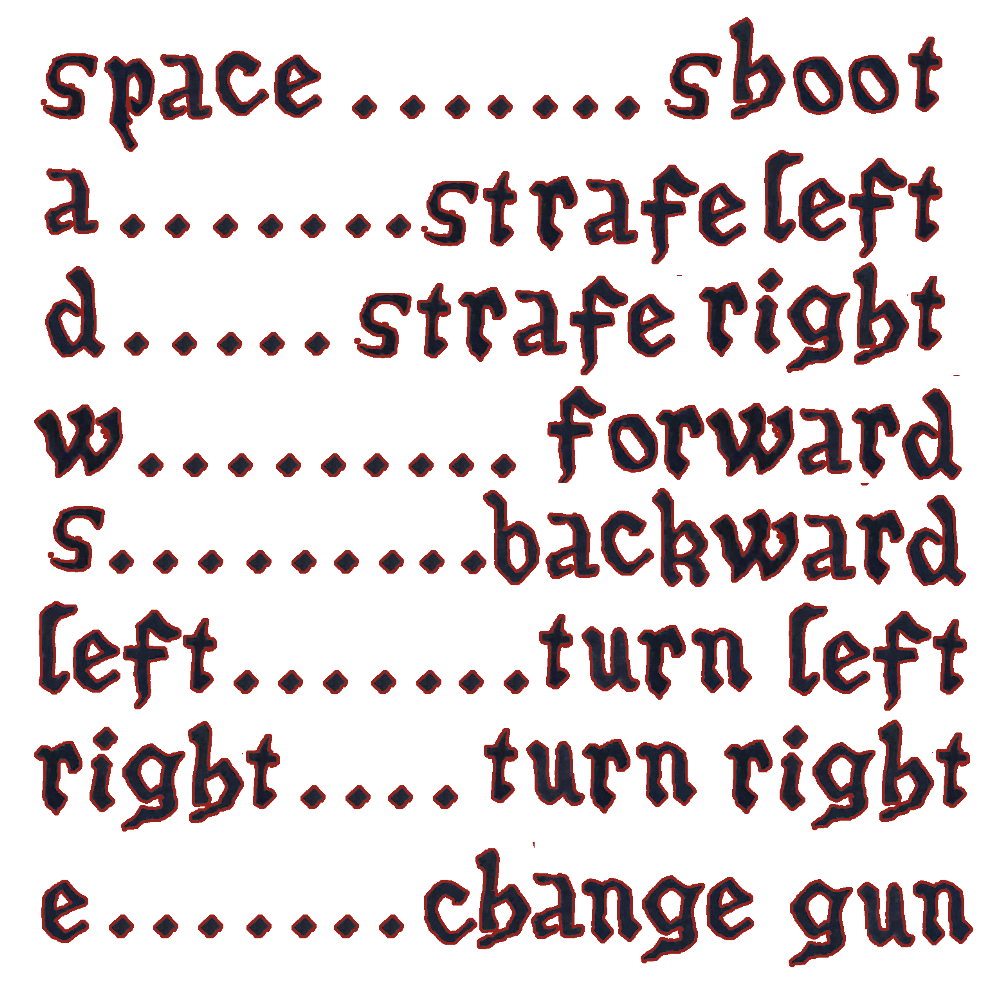 space ....... shoot
a ....... strafe left
d ..... strafe right
w ......... forward
s ......... backward
left ....... turn left
right .... turn right
e ....... change gun